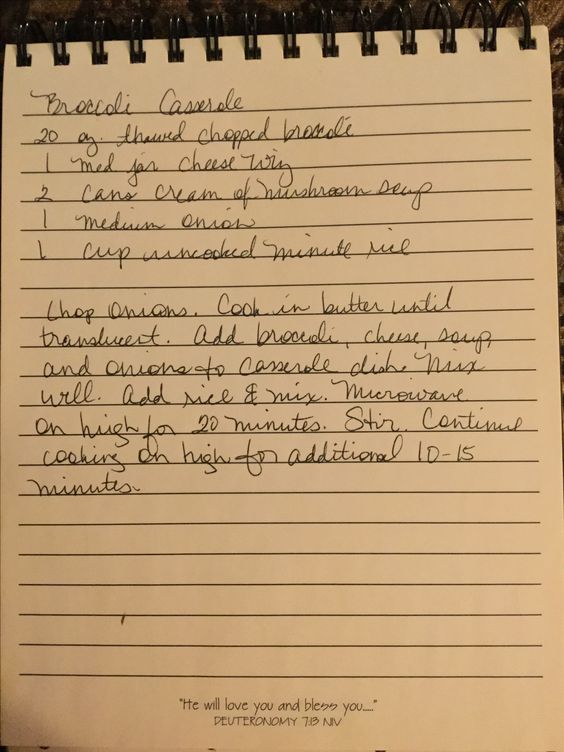 Broccoli Casserole
20 oz. thawed chopped broccoli
1 med jar cheese Wiz
2 cans cream of mushroom soup
1 medium onion
1 cup uncooked minute rice
Chop onions. Cook in butter until
translucent. Add broccoli, cheese, soup,
and onions to casserole dish. Mix
well. Add rice & mix. Microwave
on high for 20 minutes. Stir. Continue
cooking on high for additional 10-15
minutes.
"He will love you and bless you....."
DEUTERONOMY 7:13 NIV